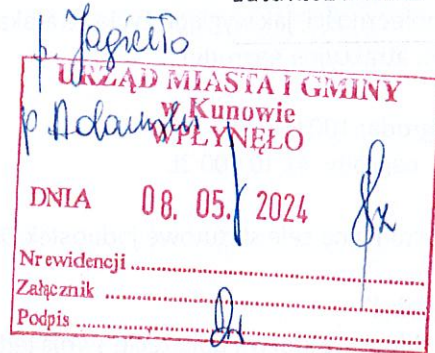 p. Jagiełło
URZĄD MIASTA I GMINY
w Kunowie
p. Adamski
WPŁYNĘŁO
DNIA 08. 05. 2024
Nr ewidencji
Załącznik
Podpis